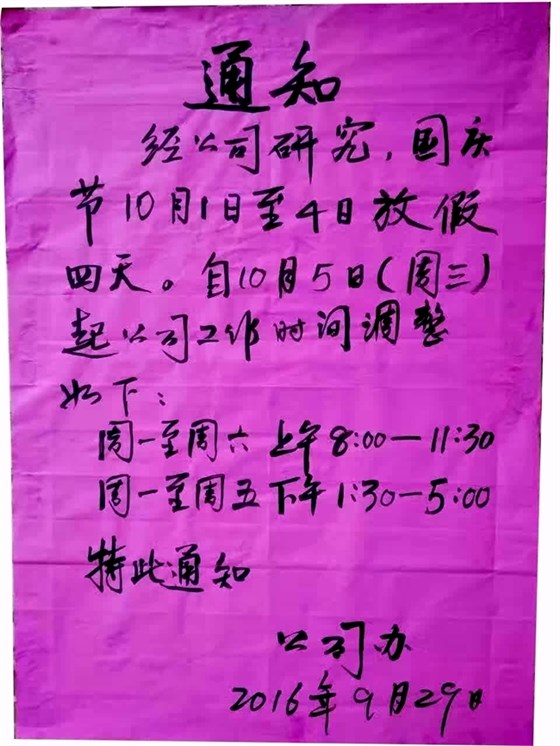 通知
经公司研究，国庆
节10月1日至4日放假
四天。自10月5日(周三)
起公司工作时间调整
如下：
周一至周六 上午8:00—11:30
周一至周五 下午1:30—5:00
特此通知
公司办
2016年9月29日